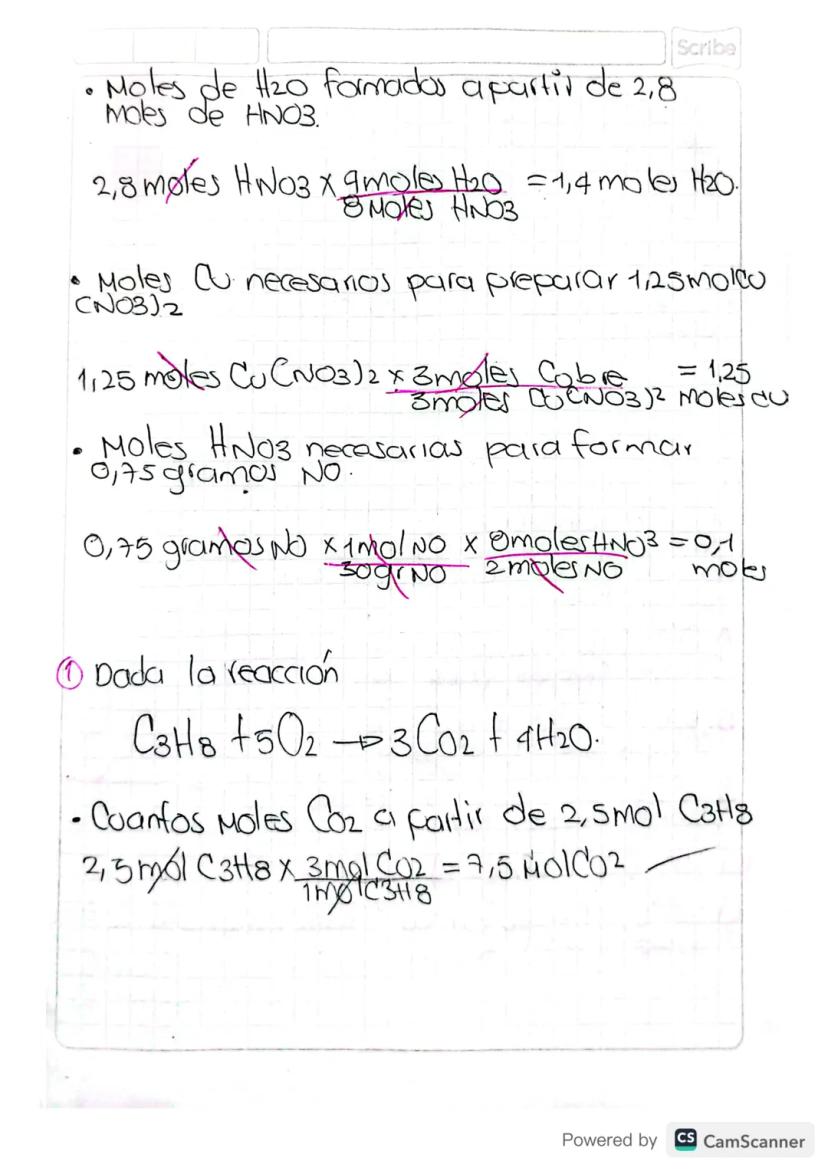 Scribe
• Moles de H2O formados apartir de 2,8
moles de HNO3.
2,8 moles HNO3 x 4moles H2O = 1,4 moles H2O.
8 Moles HNO3
• Moles Cu necesarios para preparar 1,25molCu
(NO3)2
1,25 moles Cu(NO3)2 x 3moles Cobre = 1,25
3moles Cu(NO3)2 moles cu
• Moles HNO3 necesarias para formar
0,75 gramos NO.
0,75 gramos NO x 1mol NO x 8moles HNO3 = 0,1
30gr NO 2moles NO moles
① Dada la reacción
C3H8 + 5O2 → 3CO2 + 4H2O.
• Cuantos Moles CO2 a partir de 2,5mol C3H8
2,5mol C3H8 x 3mol CO2 = 7,5 MolCO2
1molC3H8
Powered by CS CamScanner